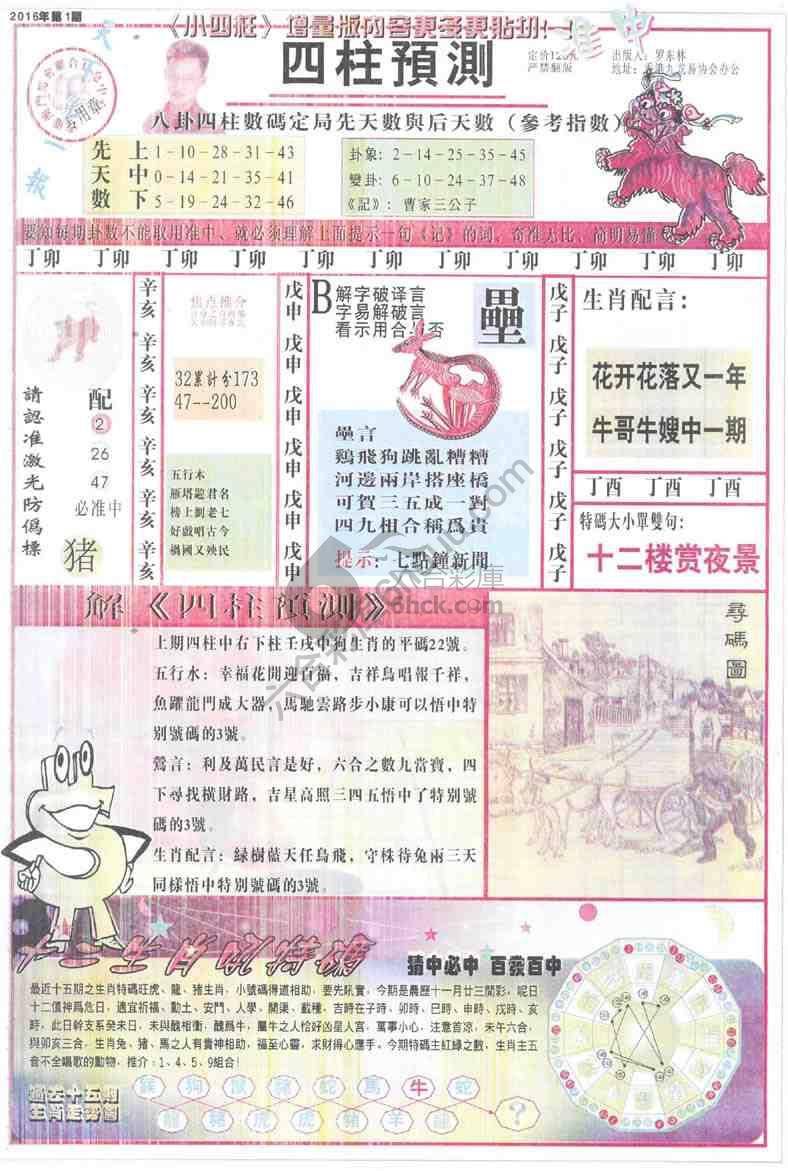 2016年第1期
《小四柱》增量版内容更多更贴切!
准中
四柱預測
定价120元
严禁翻版
出版人：罗东林
八卦四柱數碼定局先天數與后天數（參考指數）
先天數
上 1-10-28-31-43
中 0-14-21-35-41
下 5-19-24-32-46
卦象：2-14-25-35-45
變卦：6-10-24-37-48
《記》：曹家三公子
丁卯 丁卯 丁卯 丁卯 丁卯 丁卯 丁卯 丁卯 丁卯 丁卯
請認准激光防僞標
配
2
26
47
必准中
猪
辛亥 辛亥 辛亥 辛亥 辛亥 辛亥
32累計分173
47--200
五行木
雁塔題君名
榜上劉老七
好戲唱古今
禍國又殃民
戊申 戊申 戊申 戊申 戊申 戊申
B
解字破译言
字易解破言
看示用合与否
壘
壘言
鷄飛狗跳亂糟糟
河邊兩岸搭座橋
可賀三五成一對
四九相合稱爲貴
提示：七點鐘新聞
戊子 戊子 戊子 戊子 戊子 戊子
生肖配言：
花开花落又一年
牛哥牛嫂中一期
丁酉 丁酉 丁酉 丁酉
特碼大小單雙句：
十二楼赏夜景
解《四柱預測》
上期四柱中右下柱壬戌中狗生肖的平碼22號。
五行水：幸福花開迎百福，吉祥鳥唱報千祥，
魚躍龍門成大器，馬馳雲路步小康可以悟中特
別號碼的3號。
鶯言：利及萬民言是好，六合之數九當寶，四
下尋找橫財路，吉星高照三四五悟中了特別號
碼的3號。
生肖配言：緑樹藍天任鳥飛，守株待兔兩三天
同樣悟中特別號碼的3號。
尋碼圖
六合彩庫
6hck.com
猜中必中 百發百中
最近十五期之生肖特碼旺虎、龍、猪生肖，小號碼得道相助，要先吼實，今期是農歷十一月廿三開彩，呢日
十二值神爲危日，適宜祈福、動土、安門、人學、開渠、載種，吉時在子時、卯時、巳時、申時、戊時、亥
時，此日幹支系癸未日，未與醜相衝，醜爲牛，屬牛之人恰好凶星人宮，萬事小心，注意首凉，未午六合，
與卯亥三合，生肖兔、猪、馬之人有貴神相助，福至心靈，求財得心應手。今期特碼主紅緑之數，生肖主五
音不全唱歌的動物，推介：1、4、5、9組合！
過去十五期
生肖走勢圖
猴 狗 鼠 豬 蛇 馬 牛 蛇
龍 豬 虎 虎 豬 羊 龍 ?